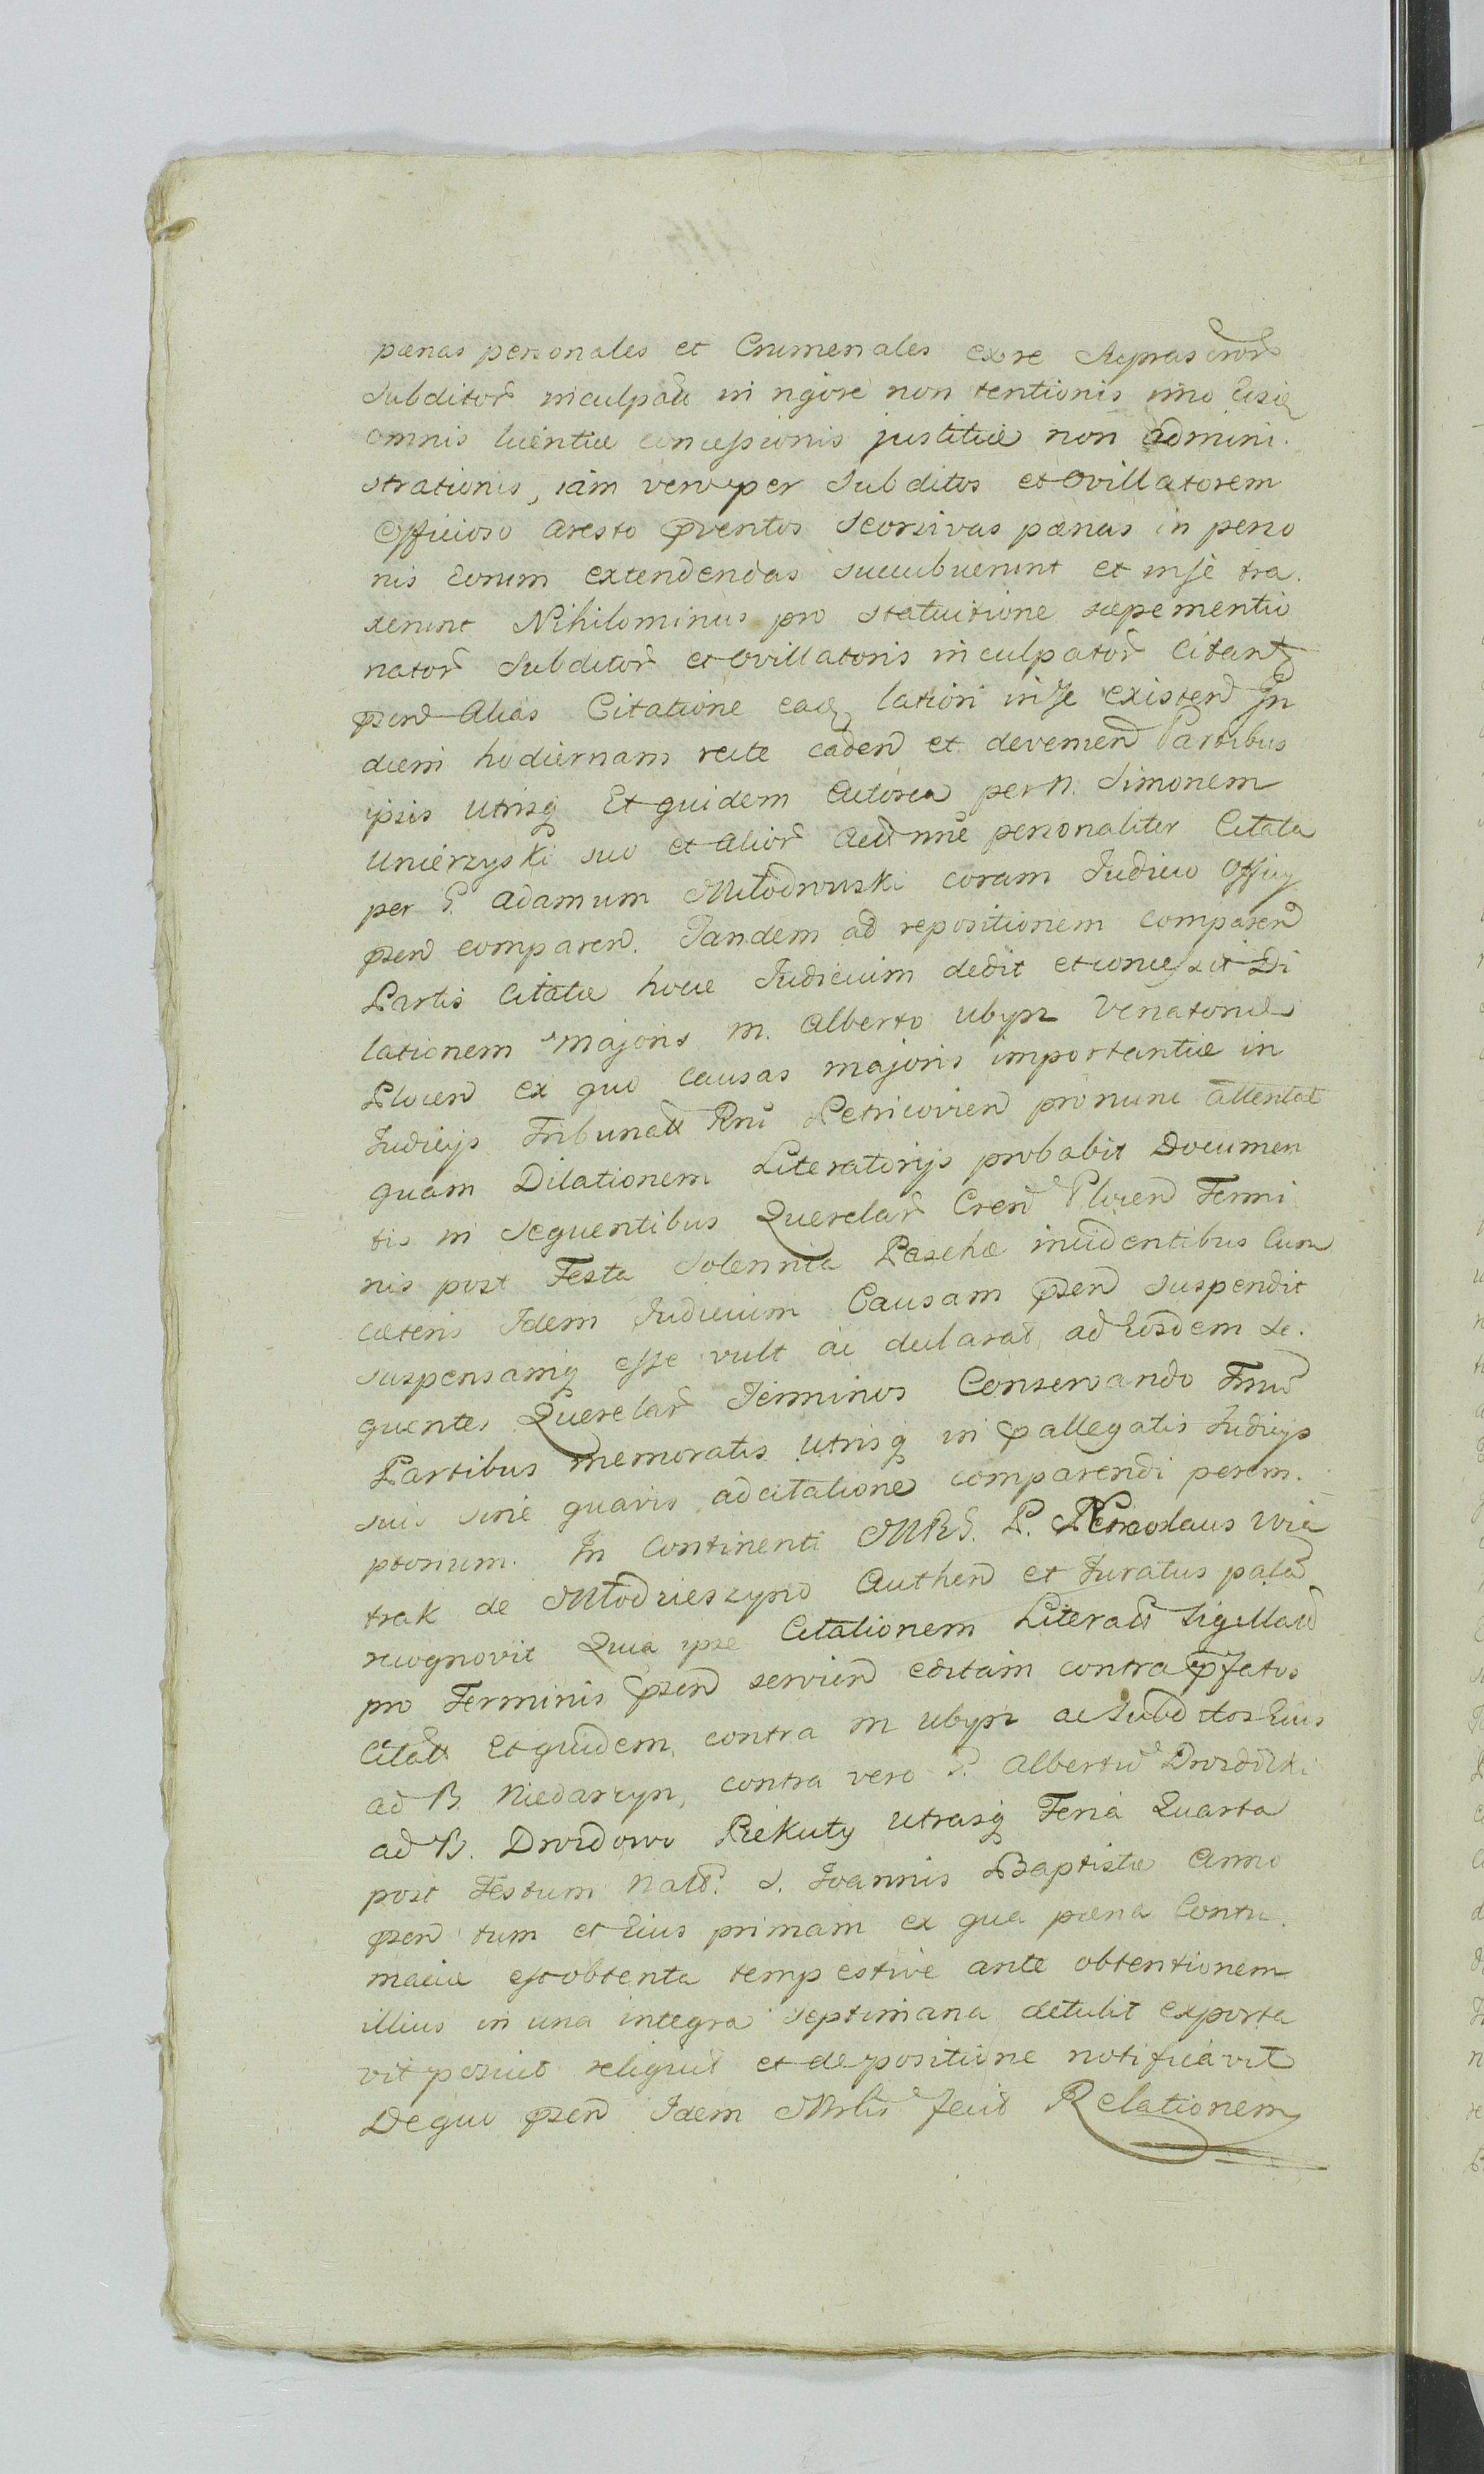 pœnas personales et Crimenales ex re supras criptor
Subditor inculpatt in rigore non tentionis imo Eisq
omnis licentiæ concessionis justitiæ non admini
strationis, iam vero per Subditos et Ovillatorem
Officioso aresto pventos Seorsivas pœnas in perso
nis Eorum extendendas succubuerunt et in se tra
xerunt Nihilominus pro statuitione sæpementio
nator Subditor et Ovillatoris inculpator Citant
psen Alias Citatione eaq lationi inse existen In
diem hodiernam recte caden et devenien Partibus
ipsis utrisq Et quidem Actorea per N. Simonem
Unierzyski suo et alior Act nne personaliter Citata
per G. Adamum Młodnowski coram Judicio Officij
psen comparen. Tandem ad repositionem comparen
Partis Citatæ hocce Judicium dedit et concessit Di
lationem majoris M. Alberto Ubysz Venatori
Plocen ex quo causas majoris importantiæ in
Judicijs Tribunatt Rni Petricovien pronunc attentat
quam Dilationem Literatorijs probabit Documen
tis in Sequentibus Querelar Cren Plocen Termi
nis post Festa Solennia Paschæ incidentibus Cum
cæteris Idem Judicium Causam psen suspendit
suspensamq esse vult ac declarat ad Eosdem Se
quentes Querelar Terminos Conservando Tnum
Partibus memoratis utrisq in pallegatis Judicijs
suis sine quavis adcitatione comparendi perem
ptorium. In Continenti MRG. P. Nicolaus Wia
trak de Młodzieszyno Authen et Juratus palam
recognovit Quia ipse Citationem Literatt Sigillatt
pro Terminis psen servien editam contra pfatos
Citatt Et quidem contra M Ubysz ac Subditos Eius
ad B. Niedarzyn, contra vero G. Albertu Drozdzki
ad B. Drozdowo Piekuty utrasq Feria Quarta
post Festum Natt. S. Joannis Baptistæ Anno
psen tum et Eius primam ex qua pœna Contu
maciæ est obtenta tempestive ante obtentionem
illius in una integra septimana detulit exporta
vit posuit reliquit et de positione notificavit
De quo psen Idem Mrlis fecit Relationem